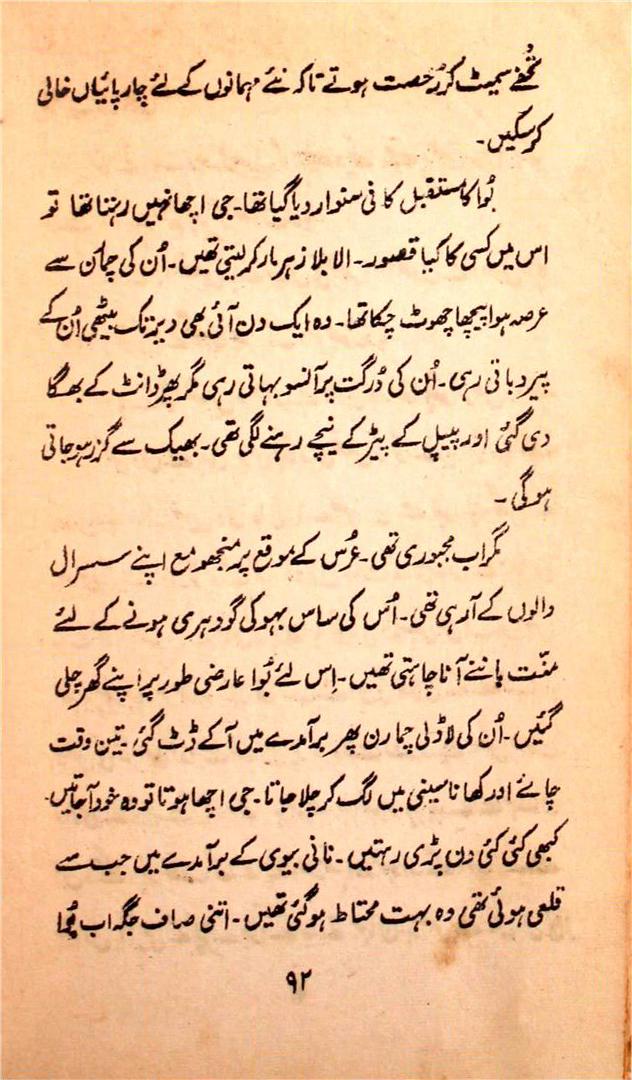 تحفے سمیٹ کر رخصت ہوتے تاکہ نئے مہمانوں کے لئے چارپائیاں خالی
کر سکیں۔
بُوا کا مستقبل کافی سنوار دیا گیا تھا۔ جی اچھا نہیں رہتا تھا تو
اس میں کسی کا کیا قصور۔ الا بلا زہر مار کر لیتی تھیں۔ اُن کی چمارن سے
عرصہ ہوا پیچھا چھوٹ چکا تھا۔ وہ ایک دن آئی بھی دیر تک بیٹھی اُن کے
پیر دباتی رہی۔ اُن کی دُرگت پر آنسو بہاتی رہی مگر پھر ڈانٹ کے بھگا
دی گئی اور پیپل کے پیڑ کے نیچے رہنے لگی تھی۔ بھیک سے گزر ہو جاتی
ہو گی۔
مگر اب مجبوری تھی۔ عُرس کے موقع پر منجھو مع اپنے سسرال
والوں کے آرہی تھی۔ اُس کی ساس بہو کی گود ہری ہونے کے لئے
منّت ماننے آنا چاہتی تھیں۔ اِس لئے بُوا عارضی طور پر اپنے گھر چلی
گئیں۔ اُن کی لاڈلی چمارن پھر برآمدے میں آکے ڈٹ گئی۔ تین وقت
چائے اور کھانا سینی میں لگ کر چلا جاتا۔ جی اچھا ہوتا تو وہ خود آجاتیں۔
کبھی کئی کئی دن پڑی رہتیں۔ نانی بیوی کے برآمدے میں جب سے
قلعی ہوئی تھی وہ بہت محتاط ہو گئی تھیں۔ اتنی صاف جگہ اب بُوا
۹۲